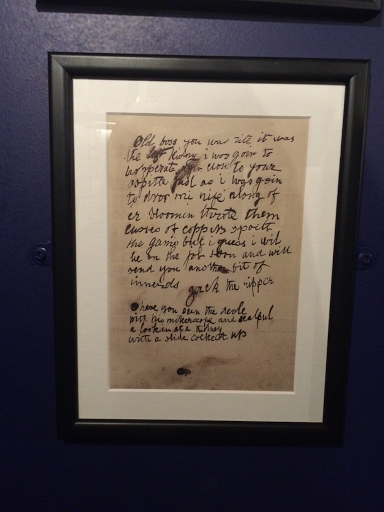 Old boss you was rite it was
the left kidny i was goin to
hoperate agin close to your
ospitle just as i was goin
to dror mi nife along of
er bloomin throte them
cusses of coppers spoilt
the game but i guess i wil
be on the job soon and will
send you another bit of
innerds Jack the ripper
O have you seen the devle
with his mikerscope and scalpul
a lookin at a kidney
with a slide cocked up